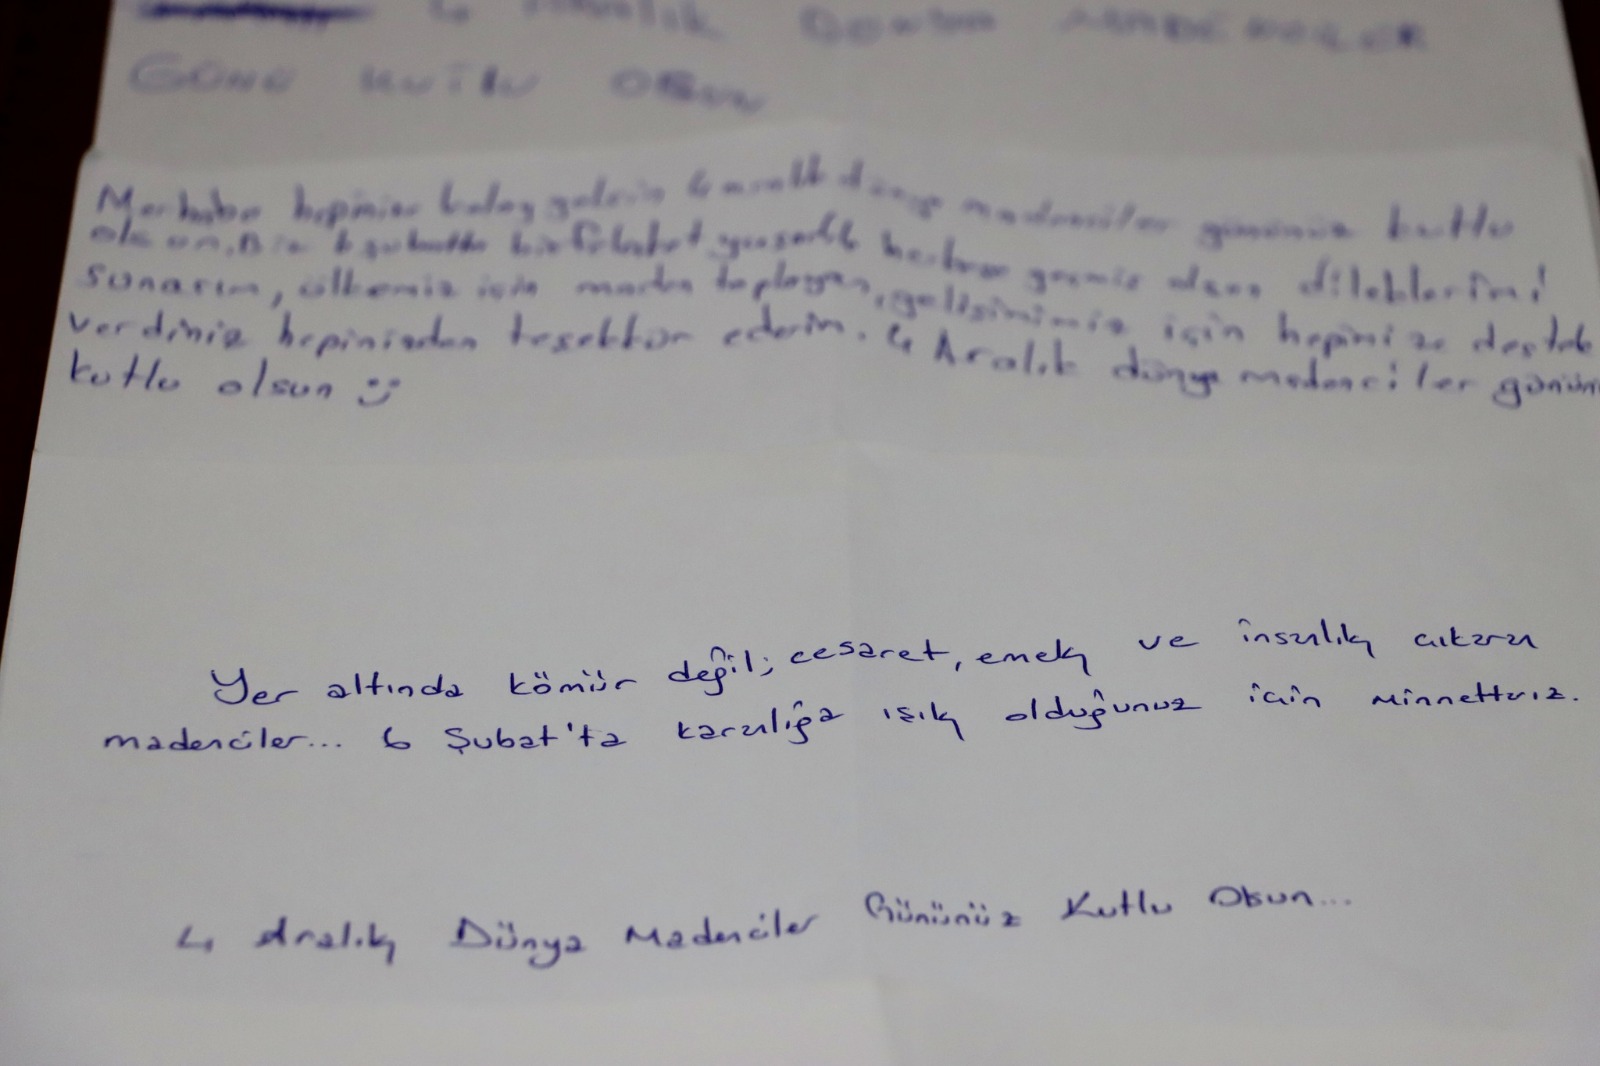 4 Aralık Dünya Madenciler
Günü kutlu olsun
Merhaba hepinize kolay gelsin 4 aralık dünya madenciler gününüz kutlu
olsun. Biz 6 şubatta bir felaket yaşadık herkese geçmiş olsun dileklerimi
sunarım, ülkemiz için maden toplayan, gelişimimiz için hepimize destek
verdiniz hepinizden teşekkür ederim. 4 Aralık dünya madenciler günün
kutlu olsun :)
Yer altında kömür değil; cesaret, emek ve insanlık çıkaran
madenciler... 6 Şubat'ta karanlığa ışık olduğunuz için minnettarız.
4 Aralık Dünya Madenciler Gününüz Kutlu Olsun...